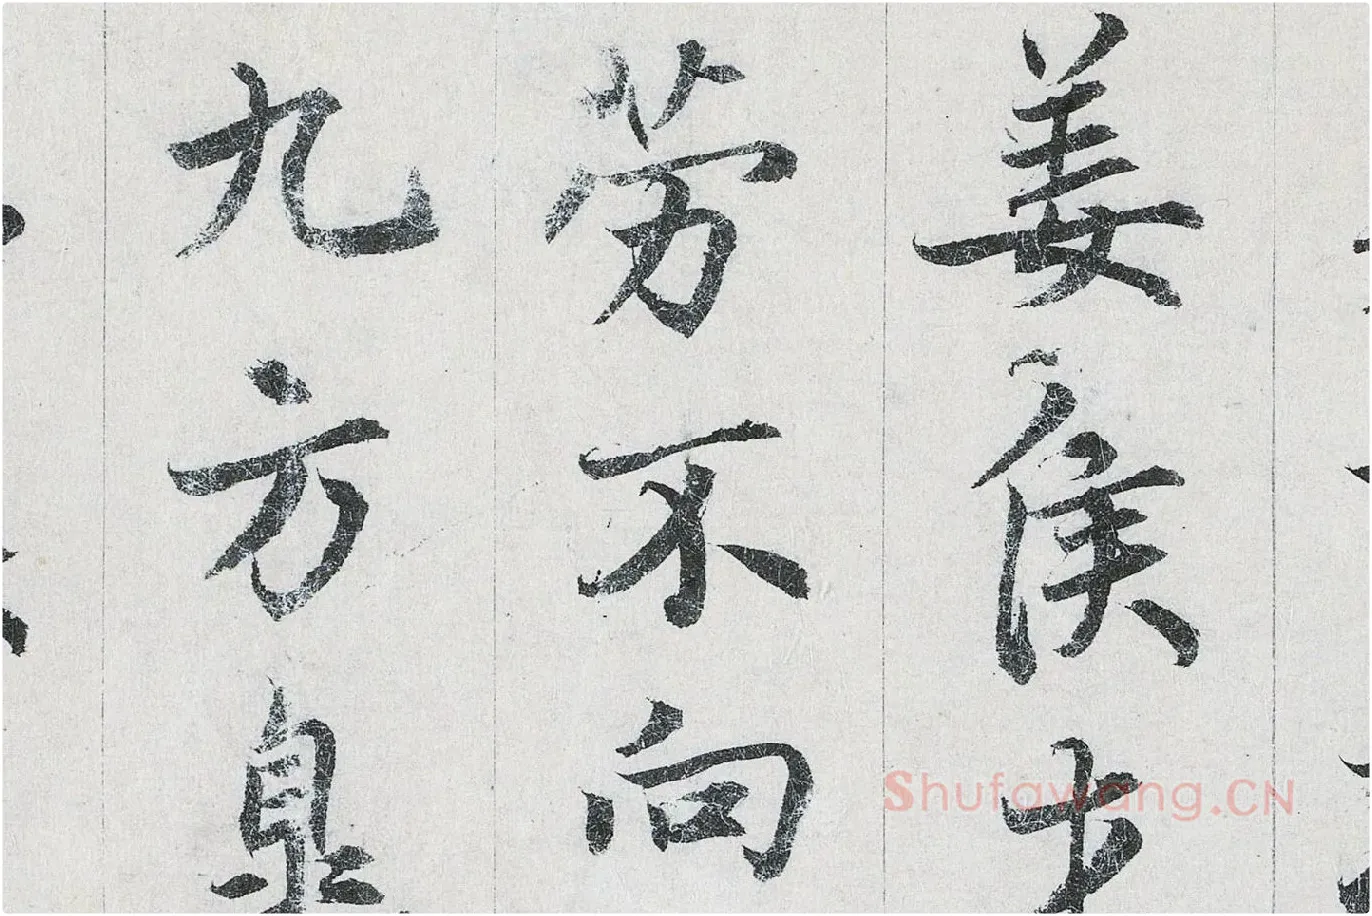 姜侯
劳不向
九方皋
Shufawang.CN